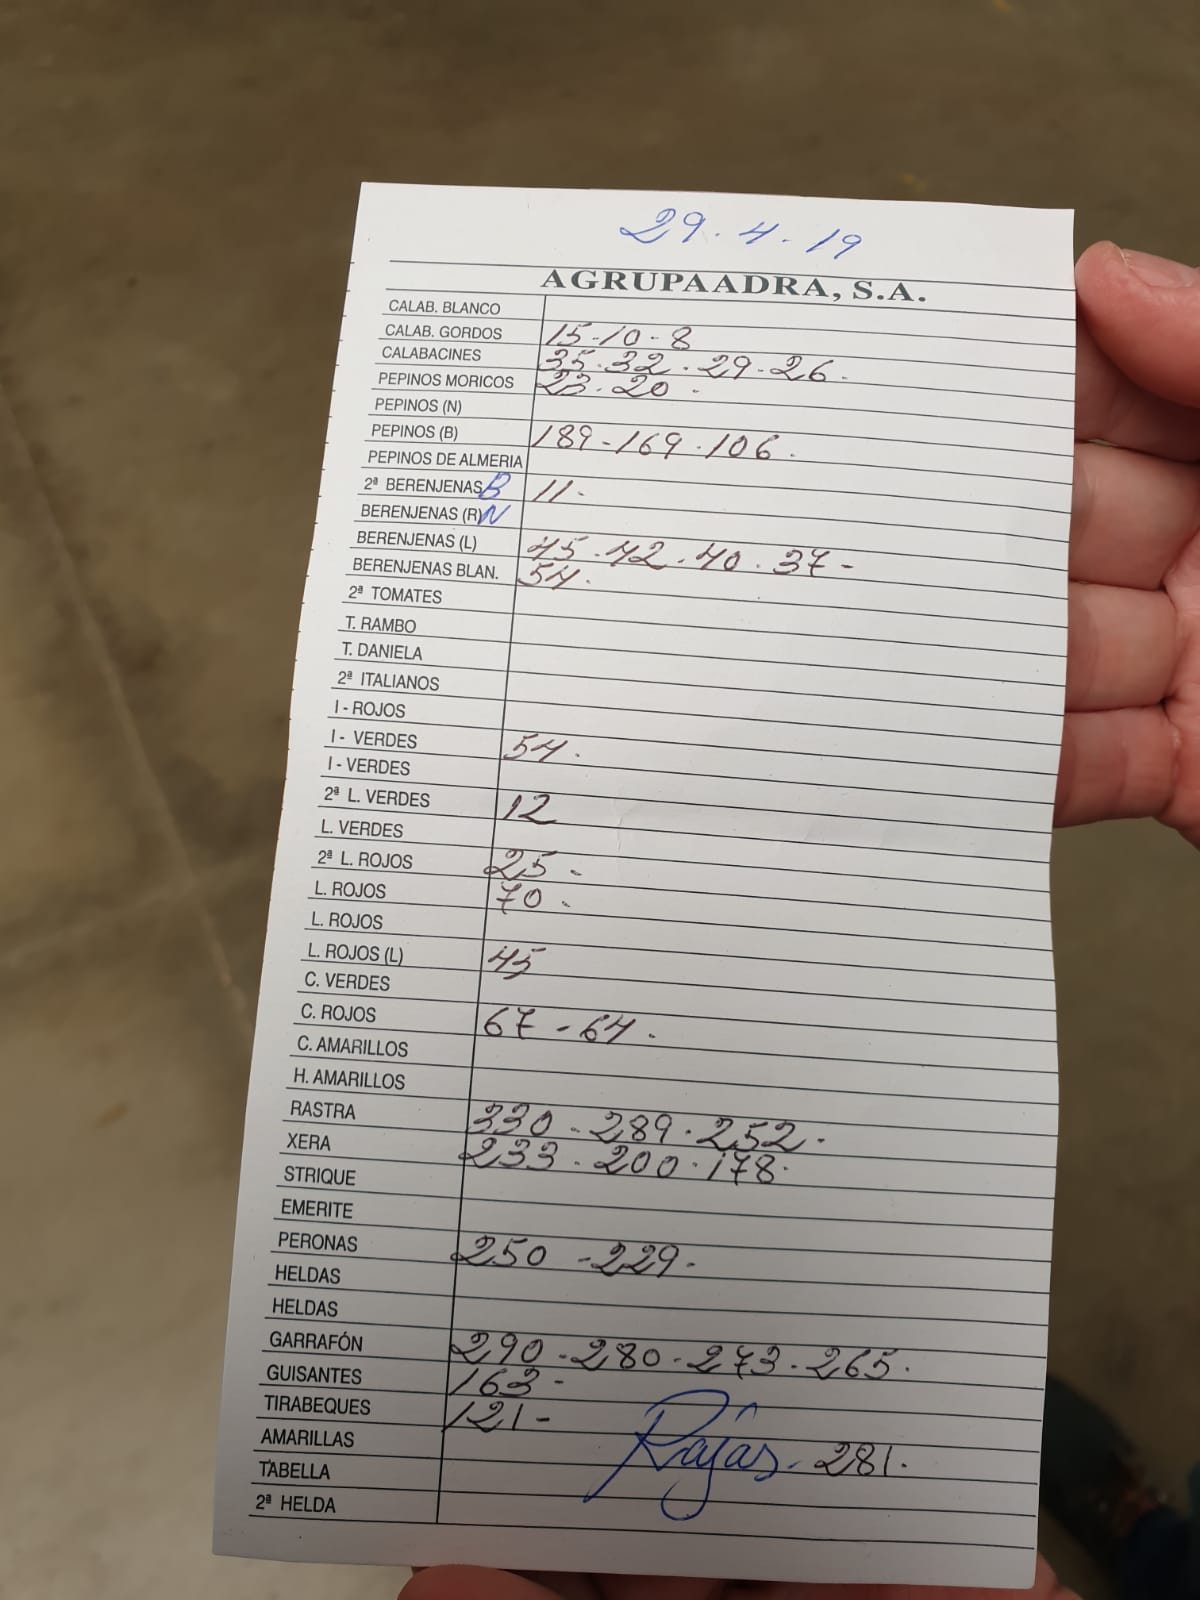 29.4.19
AGRUPAADRA, S.A.
CALAB. BLANCO
CALAB. GORDOS 15-10-8
CALABACINES 35.32.29-26.
PEPINOS MORICOS 23.20.
PEPINOS (N)
PEPINOS (B) 189-169.106.
PEPINOS DE ALMERIA
2ª BERENJENAS B 11.
BERENJENAS (R) N
BERENJENAS (L) 45.42.40.37-
BERENJENAS BLAN. 54.
2ª TOMATES
T. RAMBO
T. DANIELA
2ª ITALIANOS
I - ROJOS
I - VERDES 54.
I - VERDES
2ª L. VERDES 12
L. VERDES
2ª L. ROJOS 25-
L. ROJOS 70.
L. ROJOS
L. ROJOS (L) 45
C. VERDES
C. ROJOS 67-64.
C. AMARILLOS
H. AMARILLOS
RASTRA 330-289.252.
XERA 233.200.178.
STRIQUE
EMERITE
PERONAS 250-229.
HELDAS
HELDAS
GARRAFÓN 290-280-273.265.
GUISANTES 163-
TIRABEQUES 121-
AMARILLAS Rajas. 281.
TABELLA
2ª HELDA